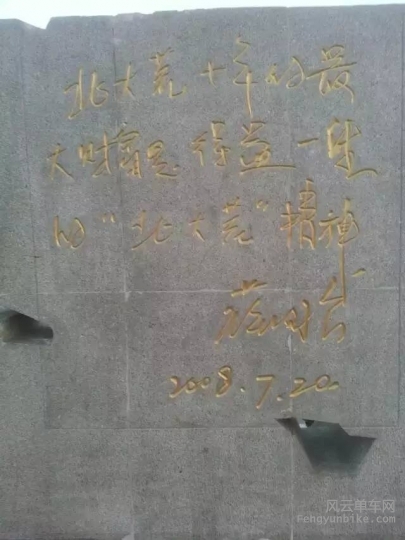 北大荒十年的最
大财富是得益一生
的“北大荒”精神
2008.7.20
风云单车网
Fengyunbike.com